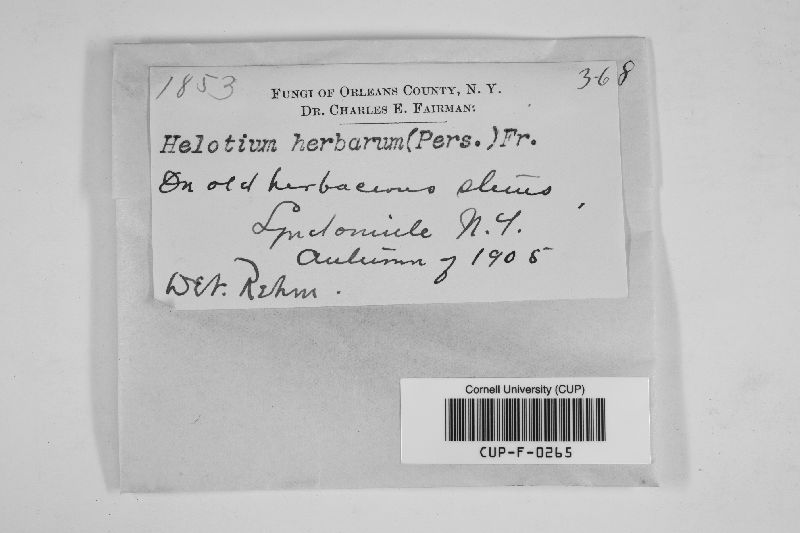 1853 368
FUNGI OF ORLEANS COUNTY, N. Y.
DR. CHARLES E. FAIRMAN.
Helotium herbarum(Pers.)Fr.
On old herbaceous stems
Lyndonville N.Y.
Autumn of 1905
Det. Rehm.
Cornell University (CUP)
CUP-F-0265